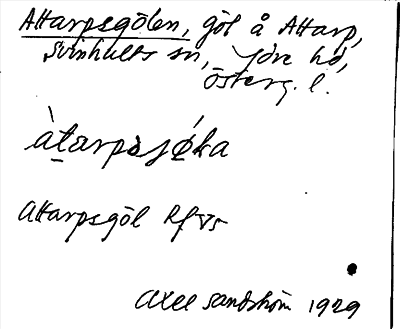 Attarpsgölen, göl å Attarp,
Svinhults sn, Ydre hd,
Österg. l.
àtarpsjǿka
Attarpsgöl Rfvs
Axel Sandström 1929